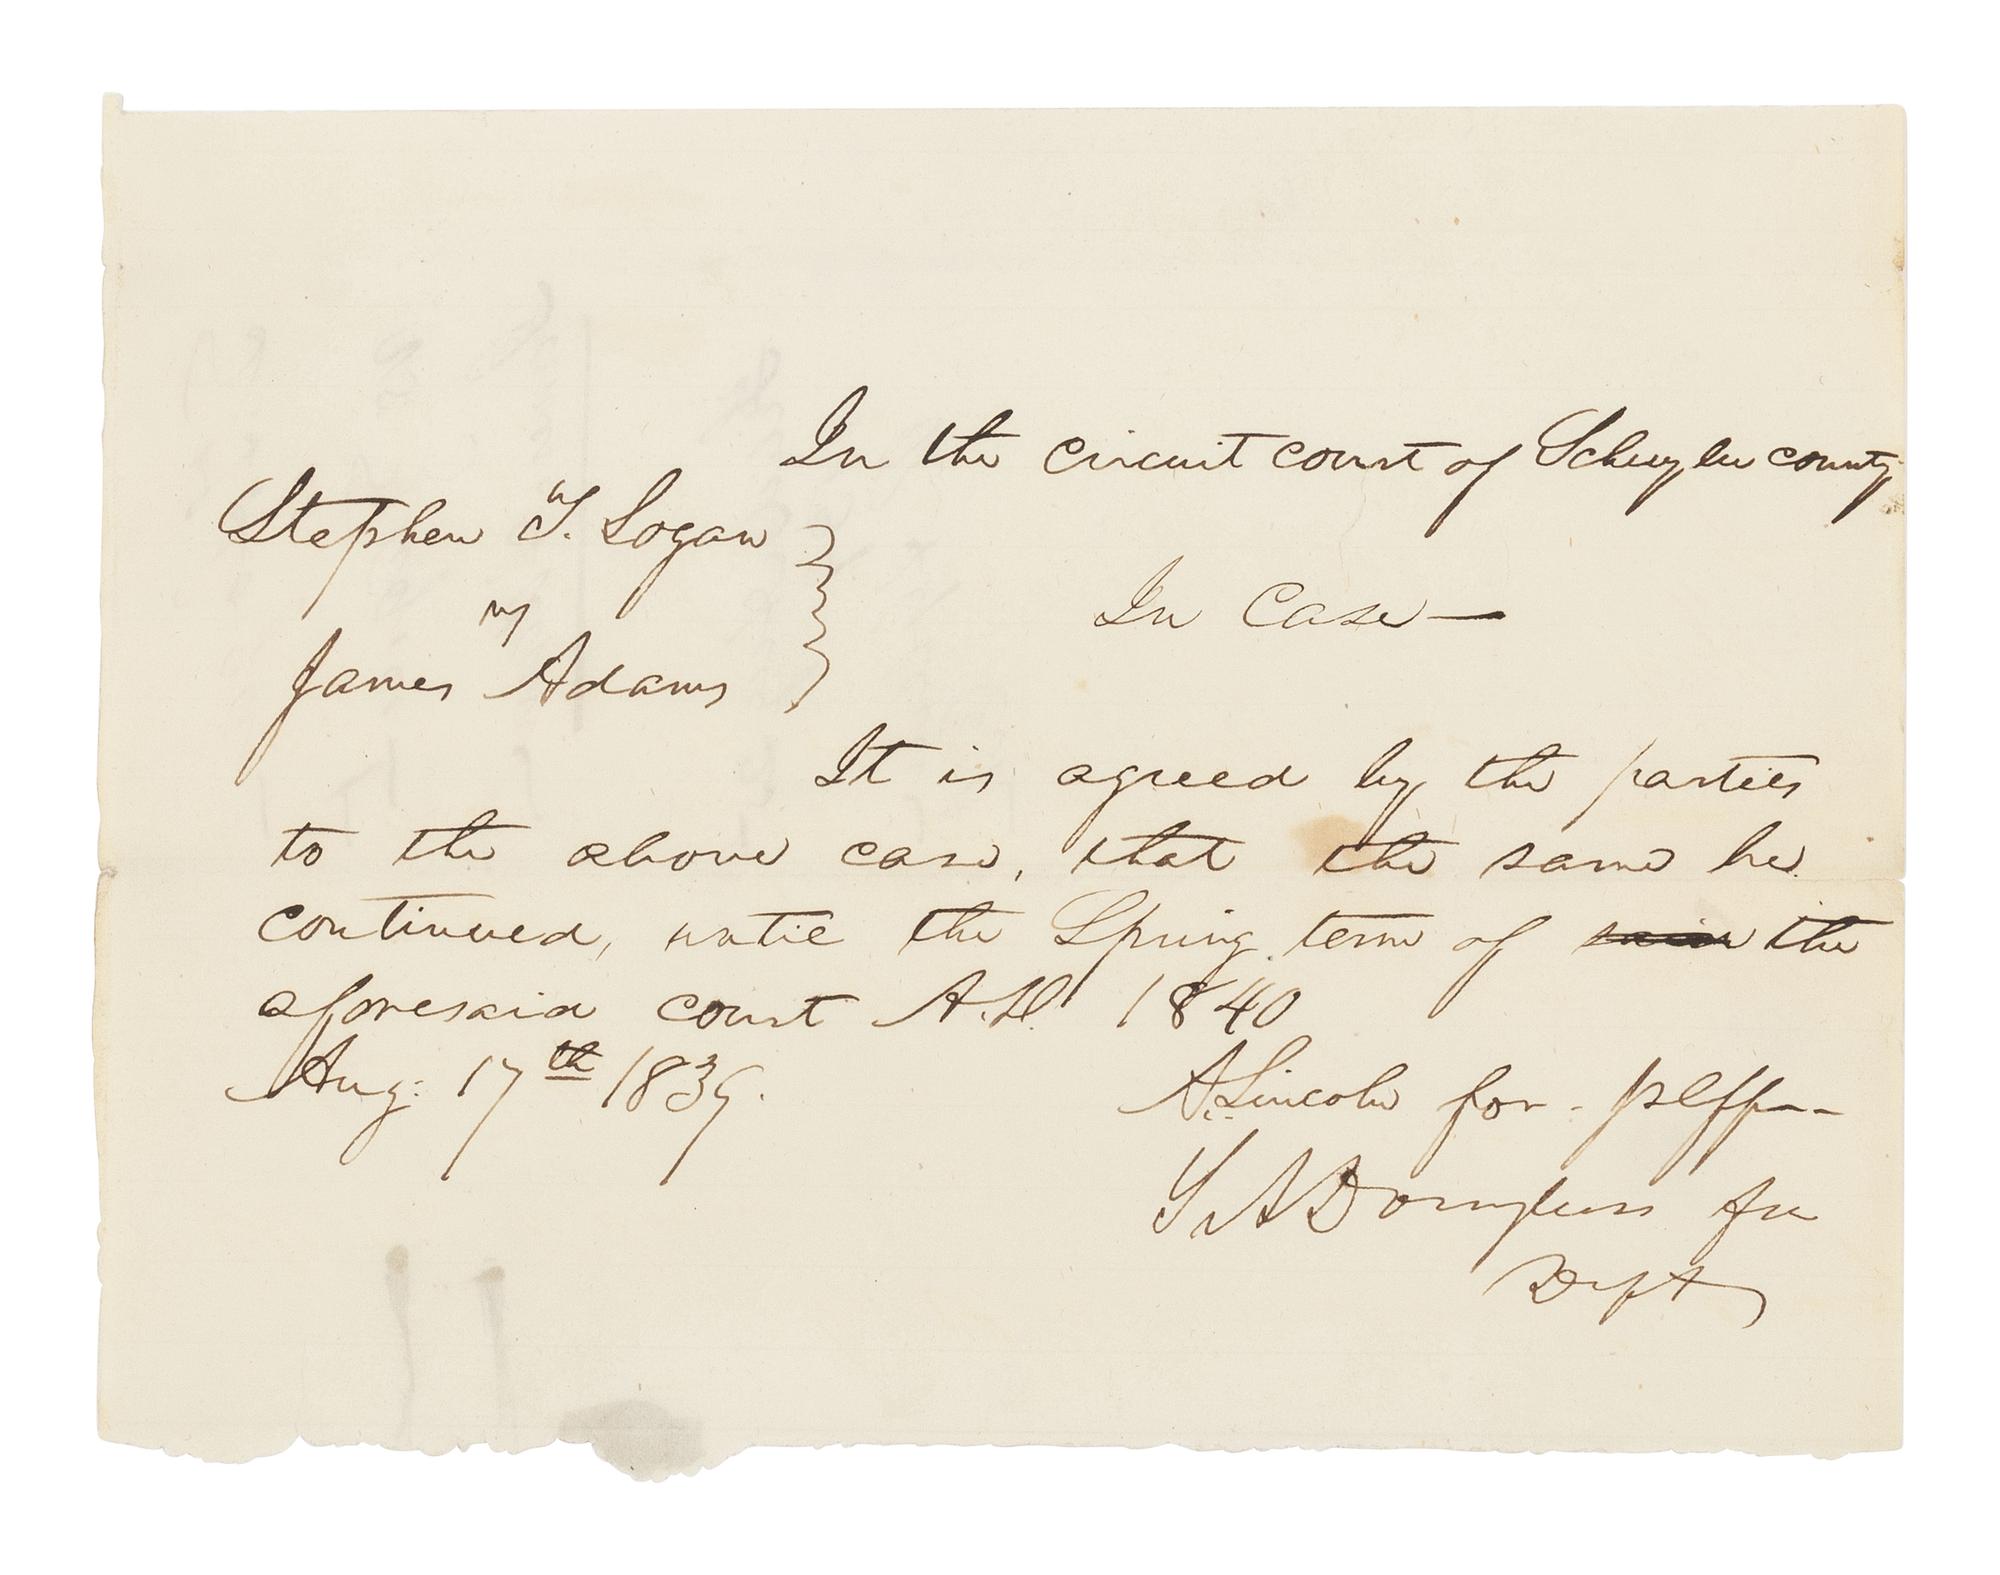 In the circuit court of Schuyler county
Stephen T. Logan
vs
In Case —
James Adams
It is agreed by the parties
to the above case, that the same be
continued, until the Spring term of said the
aforesaid court A.D. 1840
Aug: 17th 1839.
A. Lincoln for plff--
S A Douglass for
Deft